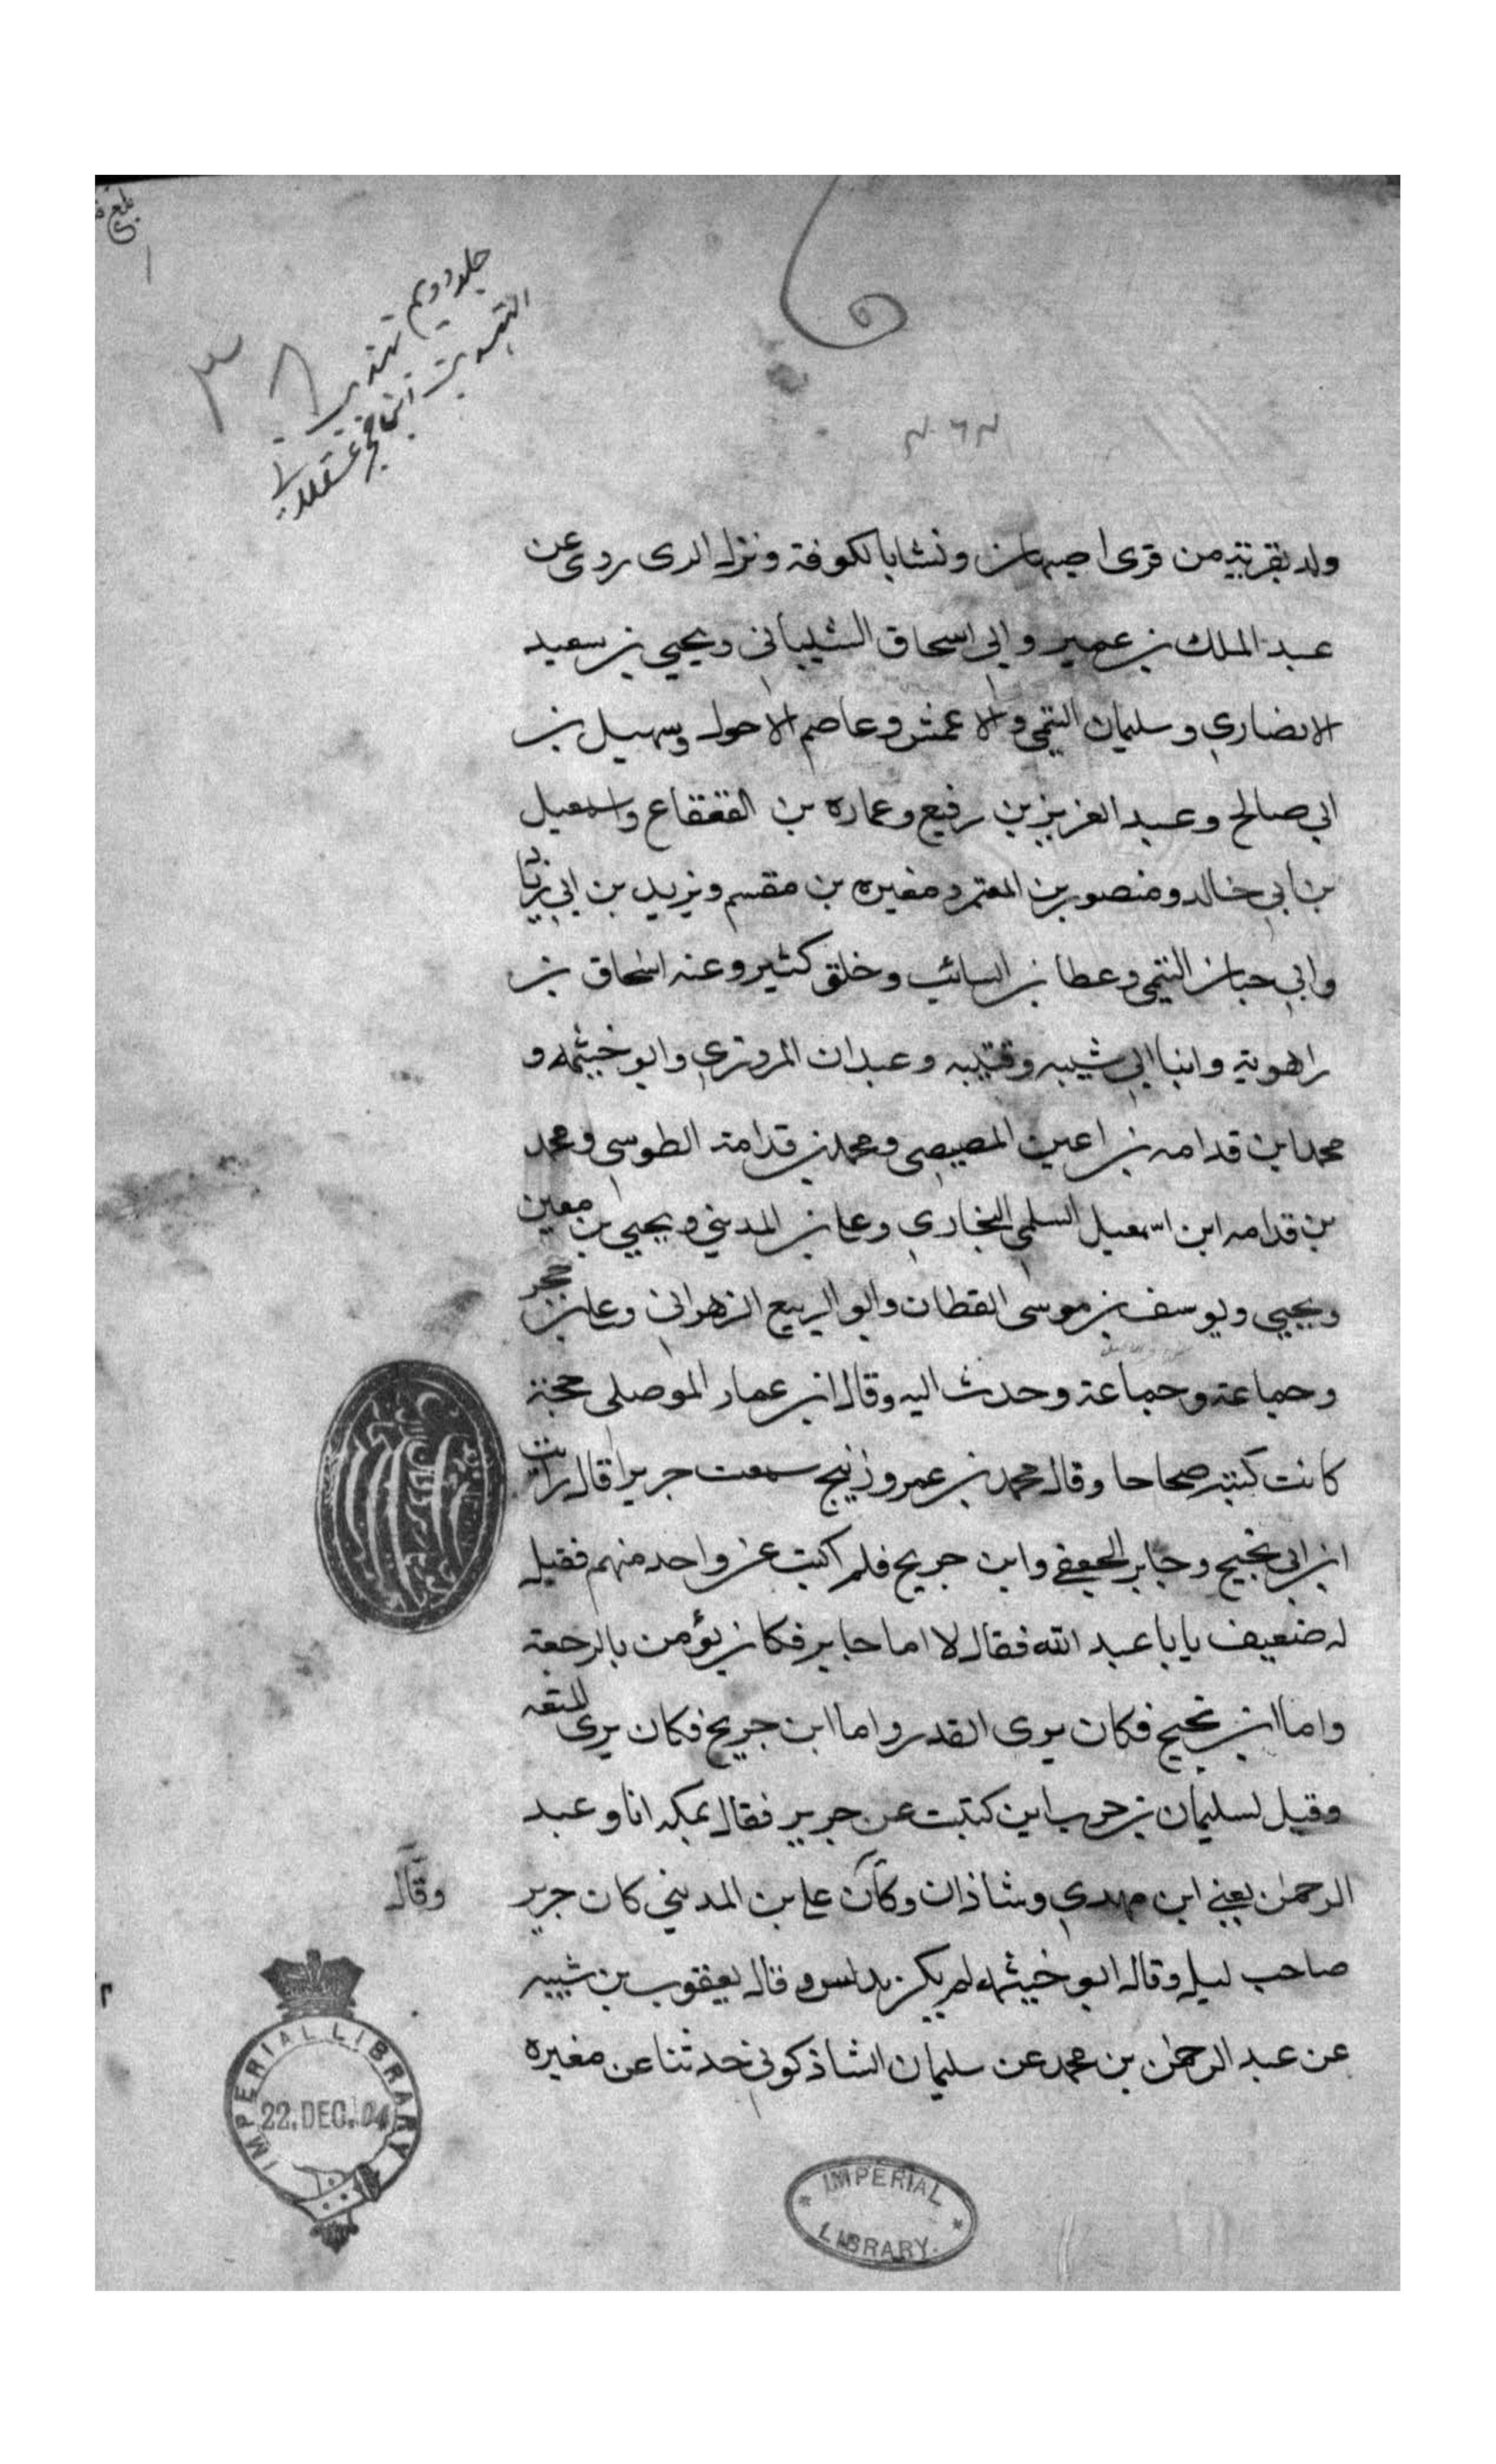 جلد دويم تهذيب
التهذيب ابن حجر عسقلاني
ولد بقرية من قرى اصبهان ونشا بالكوفة ونزل الرى روى عن
عبد الملك بن عمير وابي اسحاق الشيباني ويحيي بن سعيد
الانصاري وسليمان التيمي والاعمش وعاصم الاحول وسهيل بن
ابي صالح وعبد العزيز بن رفيع وعماره بن القعقاع واسمعيل
بن ابي خالد ومنصور بن المعتمر ومغيره بن مقسم ويزيد بن ابي زياد
وابي حيان التيمي وعطا بن السائب وخلق كثير وعنه اسحاق بن
راهوية وابنا ابي شيبه وقتيبه وعبدان المروزي وابو خيثمه و
محمد ابن قدامه بن اعين المصيصي ومحمد بن قدامة الطوسي ومحمد
بن قدامه ابن اسمعيل السلمي البخاري وعلي بن المديني ويحيي بن معين
ويحيي ويوسف بن موسى القطان وابو الربيع الزهراني وعلي بن حجر
وجماعة وجماعة وحدث اليه وقال ابن عمار الموصلي حجة
كانت كتبه صحاحا وقال محمد بن عمرو زنيج سمعت جريرا قال رايت
ابن ابي نجيح وجابر الجعفي وابن جريج فلم اكتب عن واحد منهم فقيل
له ضعيف يابا عبد الله فقال لا اما جابر فكان يؤمن بالرجعة
واما ابن نجيح فكان يرى القدر واما ابن جريج فكان يرى المتعه
وقيل لسليمان بن حرب اين كتبت عن جرير فقال بمكه انا وعبد
الرحمن يعني ابن مهدي وشاذان وكان علي بن المديني كان جرير
وقال
صاحب ليل وقال ابو خيثمه لم يكن يدلس وقال يعقوب بن شيبه
عن عبد الرحمن بن محمد عن سليمان الشاذكوني حدثنا عن مغيره
IMPERIAL LIBRARY
22.DEC.04
IMPERIAL
LIBRARY.